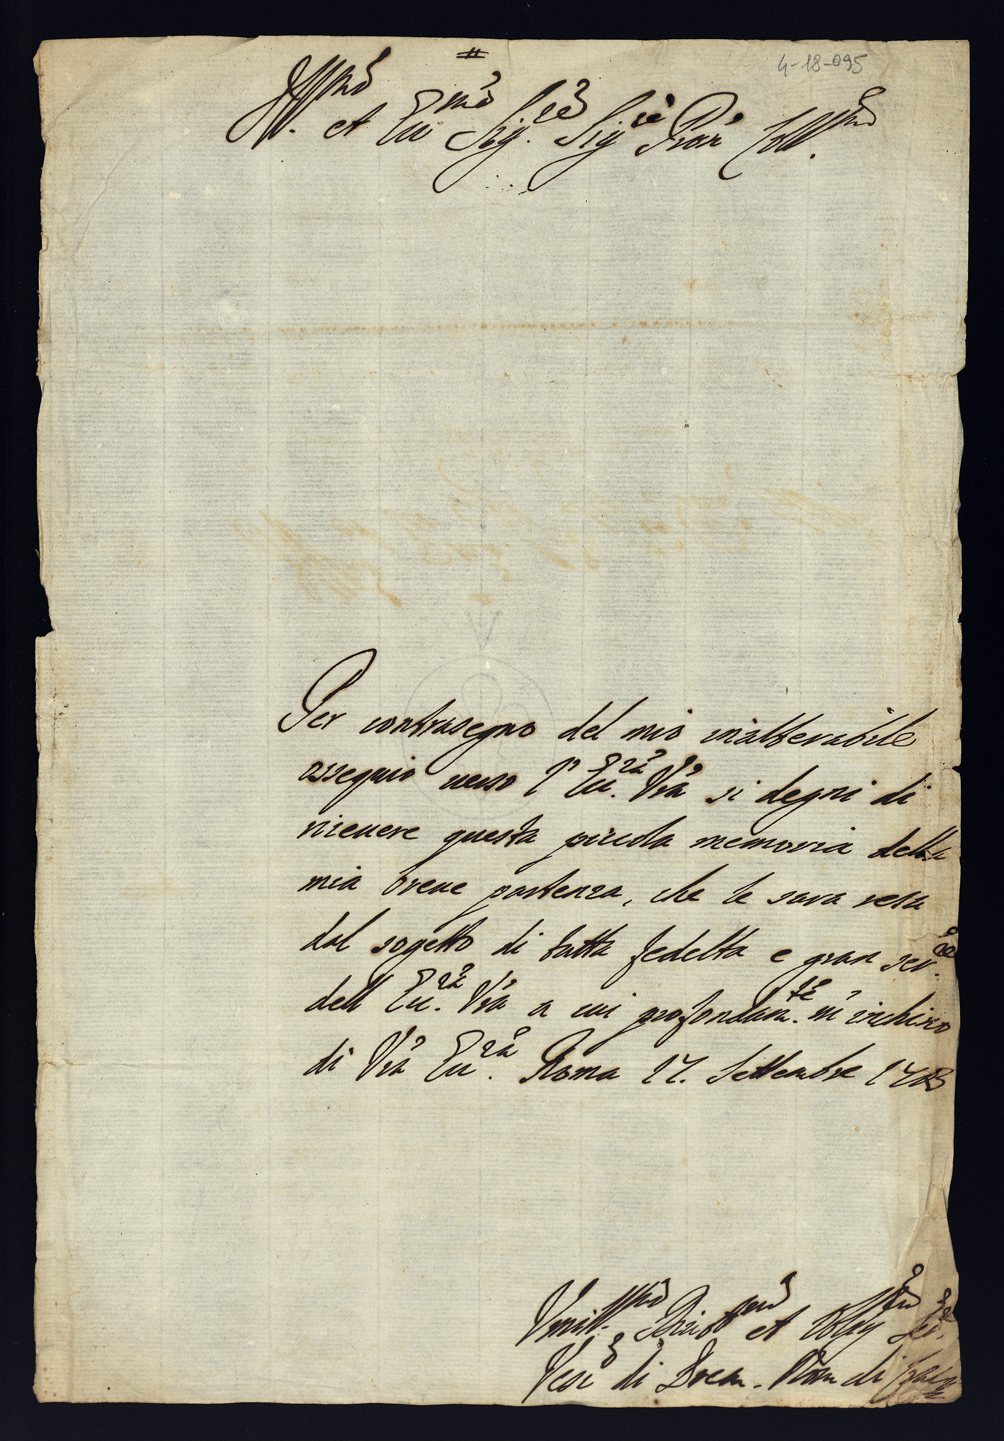 4-18-095
Ill.mo et Ecc.mo Sig.re Sig.re Pron Coll.mo
Per contrasegno del mio inalterabile
ossequio uerso l' Ecc.za V.ra si degni di
riceuere questa piccola memoria della
mia breue partenza, che le sara resa
dal sogetto di tutta fedelta e gran ser.re
dell Ecc.za V.ra a cui profondam.te m' inchino
di V.ra Ecc.za Roma 17. Settembre
Vmill.mo Diuot.mo et Oblig.mo Ser.re
Vesc.o di